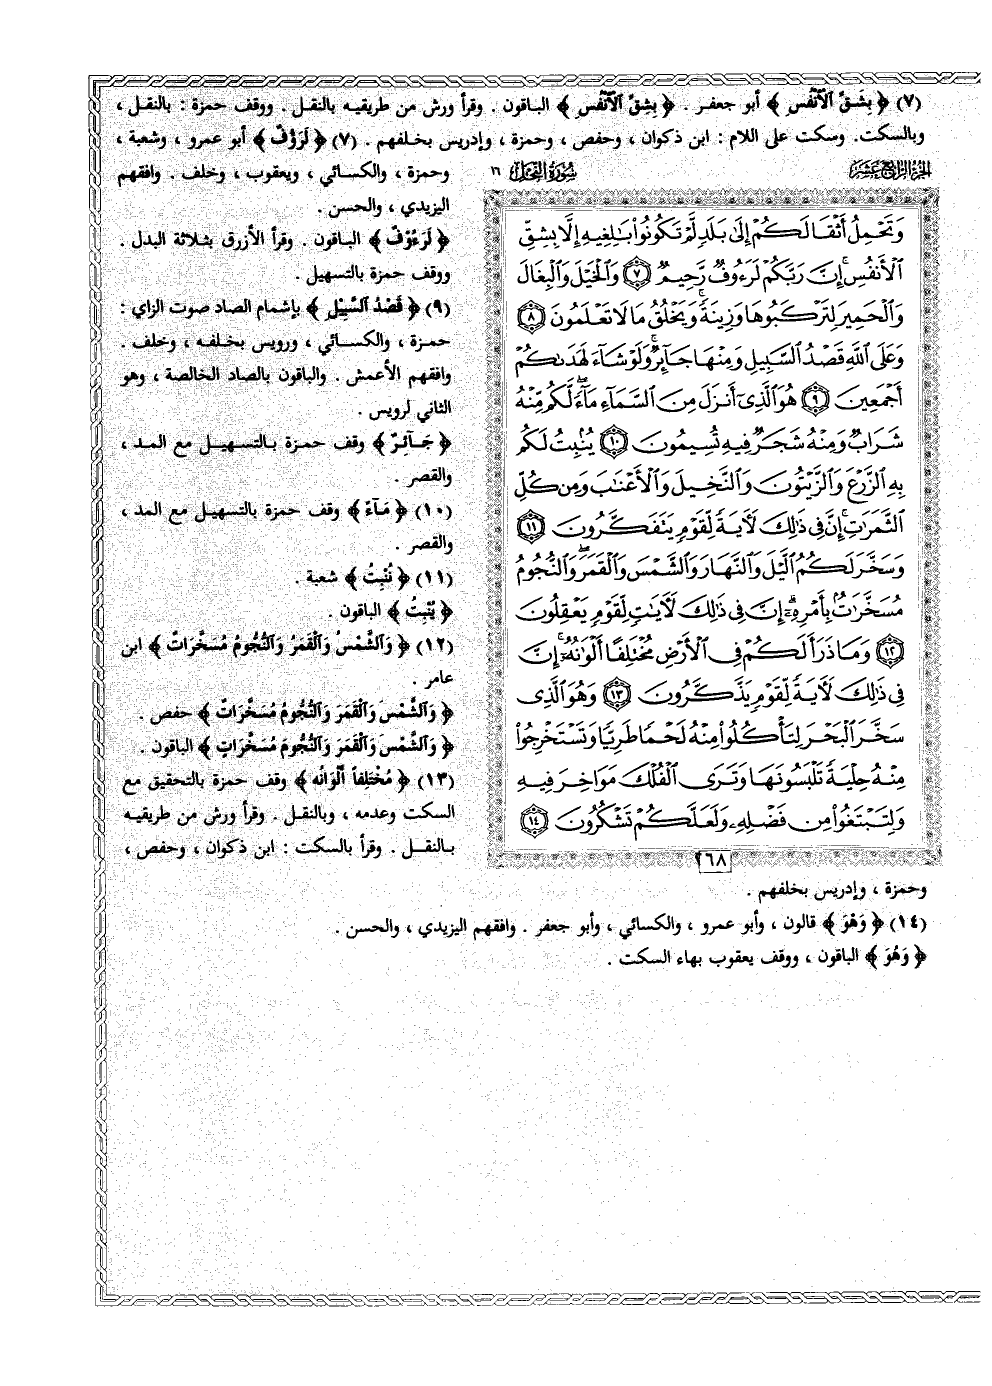 (٧) ﴿ بِشَقِّ ٱلْأَنفُسِ ﴾ أبو جعفر . ﴿ بِشِقِّ ٱلْأَنفُسِ ﴾ الباقون . وقرأ ورش من طريقيه بالنقل . ووقف حمزة : بالنقل ،
وبالسكت. وسكت على اللام : ابن ذكوان ، وحفص ، وحمزة ، وإدريس بخلفهم . (٧) ﴿ لَرَؤُفٌ ﴾ أبو عمرو ، وشعبة ،
وحمزة ، والكسائي ، ويعقوب ، وخلف . وافقهم
اليزيدي ، والحسن .
﴿ لَرَءُوفٌ ﴾ الباقون . وقرأ الأزرق بثلاثة البدل .
ووقف حمزة بالتسهيل .
(٩) ﴿ قَصْدُ السَّبِيلِ ﴾ بإشمام الصاد صوت الزاي :
حمزة ، والكسائي ، ورويس بخلفه ، وخلف .
وافقهم الأعمش . والباقون بالصاد الخالصة ، وهو
الثاني لرويس .
﴿ جَآئِرٌ ﴾ وقف حمزة بالتسهيل مع المد ،
والقصر .
(١٠) ﴿ مَآءً ﴾ وقف حمزة بالتسهيل مع المد ،
والقصر .
(١١) ﴿ نُنْبِتُ ﴾ شعبة .
﴿ يُنْبِتُ ﴾ الباقون .
(١٢) ﴿ وَٱلشَّمْسُ وَٱلْقَمَرُ وَٱلنُّجُومُ مُسَخَّرَاتٌ ﴾ ابن
عامر .
﴿ وَٱلشَّمْسَ وَٱلْقَمَرَ وَٱلنُّجُومُ مُسَخَّرَاتٌ ﴾ حفص .
﴿ وَٱلشَّمْسَ وَٱلْقَمَرَ وَٱلنُّجُومَ مُسَخَّرَاتٍ ﴾ الباقون .
(١٣) ﴿ مُخْتَلِفاً أَلْوَانُه ﴾ وقف حمزة بالتحقيق مع
السكت وعدمه ، وبالنقل . وقرأ ورش من طريقيه
بالنقل . وقرأ بالسكت : ابن ذكوان ، وحفص ،
الجزء الرابع عشر
سورة النحل ١٦
وَتَحْمِلُ أَثْقَالَكُمْ إِلَىٰ بَلَدٍ لَّمْ تَكُونُوا۟ بَٰلِغِيهِ إِلَّا بِشِقِّ
ٱلْأَنفُسِ ۚ إِنَّ رَبَّكُمْ لَرَءُوفٌ رَّحِيمٌ ٧ وَٱلْخَيْلَ وَٱلْبِغَالَ
وَٱلْحَمِيرَ لِتَرْكَبُوهَا وَزِينَةً ۚ وَيَخْلُقُ مَا لَا تَعْلَمُونَ ٨
وَعَلَى ٱللَّهِ قَصْدُ ٱلسَّبِيلِ وَمِنْهَا جَآئِرٌ ۚ وَلَوْ شَآءَ لَهَدَىٰكُمْ
أَجْمَعِينَ ٩ هُوَ ٱلَّذِىٓ أَنزَلَ مِنَ ٱلسَّمَآءِ مَآءً ۖ لَّكُم مِّنْهُ
شَرَابٌ وَمِنْهُ شَجَرٌ فِيهِ تُسِيمُونَ ١٠ يُنۢبِتُ لَكُم
بِهِ ٱلزَّرْعَ وَٱلزَّيْتُونَ وَٱلنَّخِيلَ وَٱلْأَعْنَٰبَ وَمِن كُلِّ
ٱلثَّمَرَٰتِ ۗ إِنَّ فِى ذَٰلِكَ لَءَايَةً لِّقَوْمٍ يَتَفَكَّرُونَ ١١
وَسَخَّرَ لَكُمُ ٱلَّيْلَ وَٱلنَّهَارَ وَٱلشَّمْسَ وَٱلْقَمَرَ ۖ وَٱلنُّجُومُ
مُسَخَّرَٰتٌۢ بِأَمْرِهِۦٓ ۗ إِنَّ فِى ذَٰلِكَ لَءَايَٰتٍ لِّقَوْمٍ يَعْقِلُونَ
١٢ وَمَا ذَرَأَ لَكُمْ فِى ٱلْأَرْضِ مُخْتَلِفًا أَلْوَٰنُهُۥٓ ۗ إِنَّ
فِى ذَٰلِكَ لَءَايَةً لِّقَوْمٍ يَذَّكَّرُونَ ١٣ وَهُوَ ٱلَّذِى
سَخَّرَ ٱلْبَحْرَ لِتَأْكُلُوا۟ مِنْهُ لَحْمًا طَرِيًّا وَتَسْتَخْرِجُوا۟
مِنْهُ حِلْيَةً تَلْبَسُونَهَا وَتَرَى ٱلْفُلْكَ مَوَاخِرَ فِيهِ
وَلِتَبْتَغُوا۟ مِن فَضْلِهِۦ وَلَعَلَّكُمْ تَشْكُرُونَ ١٤
٢٦٨
وحمزة ، وإدريس بخلفهم .
(١٤) ﴿ وَهْوَ ﴾ قالون ، وأبو عمرو ، والكسائي ، وأبو جعفر . وافقهم اليزيدي ، والحسن .
﴿ وَهُوَ ﴾ الباقون ، ووقف يعقوب بهاء السكت .